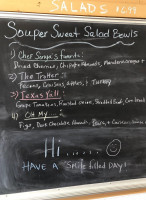 SALADS $6.99
Souper Sweet Salad Bowls
1) Chef Sonya's Favorite:
Dried Cherries, Chipotle Almonds,
2) The Trotter
Pecans, Craisins, Apples, + Turkey
3) Texas Y'all
Grape Tomatoes, Roasted Onion, Shredded Beef, Corn bread
4) OH My
Figs, Dark Chocolate Almonds, Pears, +
Hi
HAVE A Smile filled DAY!